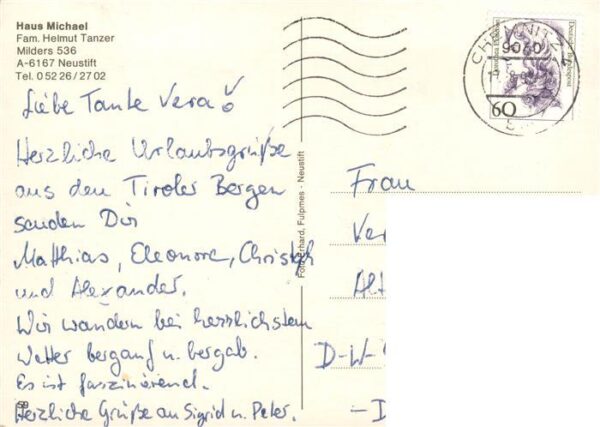 Haus Michael
Fam. Helmut Tanzer
Milders 536
A-6167 Neustift
Tel. 0 52 26 / 27 02
Liebe Tante Vera!
Herzliche Urlaubsgrüße
aus den Tiroler Bergen
senden Dir
Matthias, Eleonore, Christoph
und Alexander.
Wir wandern bei herrlichstem
Wetter bergauf u. bergab.
Es ist faszinierend.
Herzliche Grüße an Sigrid u. Peter.
Foto Gerhard, Fulpmes - Neustift
CHEMNITZ
9060
Deutsche Bundespost
60
Frau
Ver
Alt
D-W-